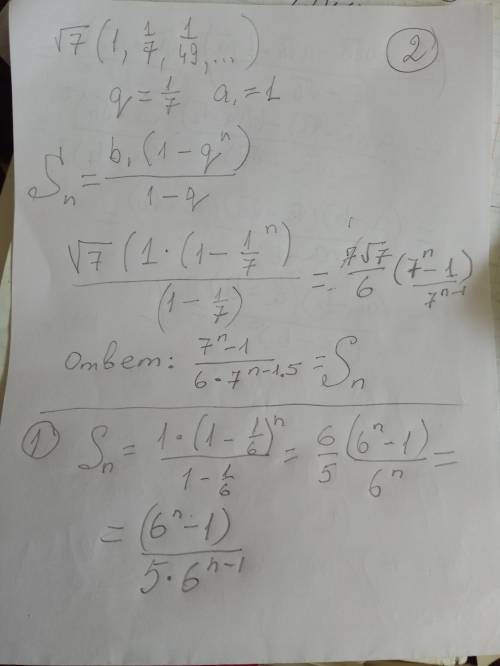 √7 (1, 1/7, 1/49, ...) ②
q = 1/7 a₁ = 1
Sₙ = b₁ (1 - qⁿ) / 1 - q
√7 (1 · (1 - 1/7ⁿ) / (1 - 1/7) = 7√7/6 (7ⁿ - 1 / 7ⁿ⁻¹)
Ответ: 7ⁿ - 1 / 6 · 7ⁿ⁻¹·⁵ = Sₙ
① Sₙ = 1 · (1 - 1/6)ⁿ / 1 - 1/6 = 6/5 (6ⁿ - 1) / 6ⁿ =
= (6ⁿ - 1) / 5 · 6ⁿ⁻¹